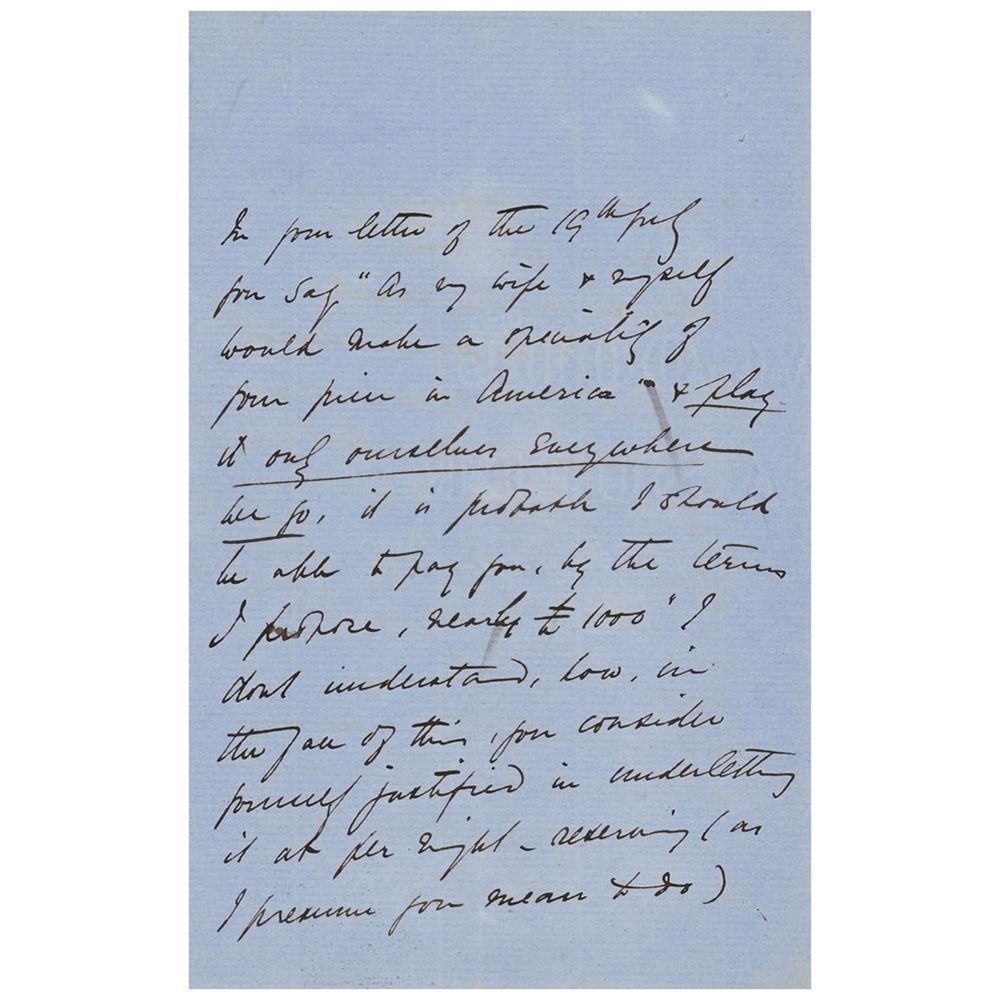 In your letter of the 19th July
you say "As my wife & myself
would make a speciality of
your piece in America" & play
it only ourselves everywhere
we go, it is probable I should
be able to pay you, by the terms
I propose, nearly £1000" I
dont understand, how, in
the face of this, you consider
yourself justified in underletting
it at per night - reserving (as
I presume you mean to do)